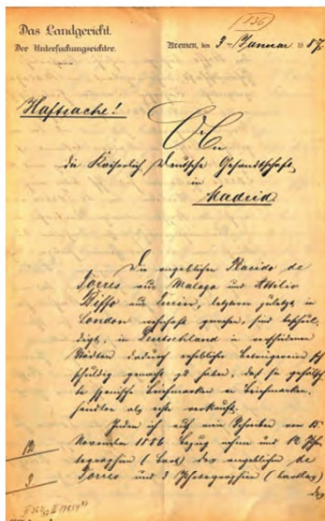 136
Das Landgericht.
Der Untersuchungsrichter.
Bremen, den 3 Januar 1887
Haftsache!
An
die Kaiserlich Deutsche Gesandtschaft
in
Madrid
Die angeblichen Placido de
Torres aus Malaga und Attilio
Biffo aus letzterer zuletzt in
London wohnhaft gewesen, sind beschul-
digt, in Deutschland in verschiedenen
Städten dadurch erhebliche Betrügereien sich
schuldig gemacht zu haben, daß sie gefälsch-
te spanische Briefmarken an Briefmarken-
händler als echte verkauft.
Indem ich auf mein Schreiben vom 15
November 1886 Bezug nehme und 12 Pho-
tographien des angeblichen de
Torres und 3 Photographien
des
12
3